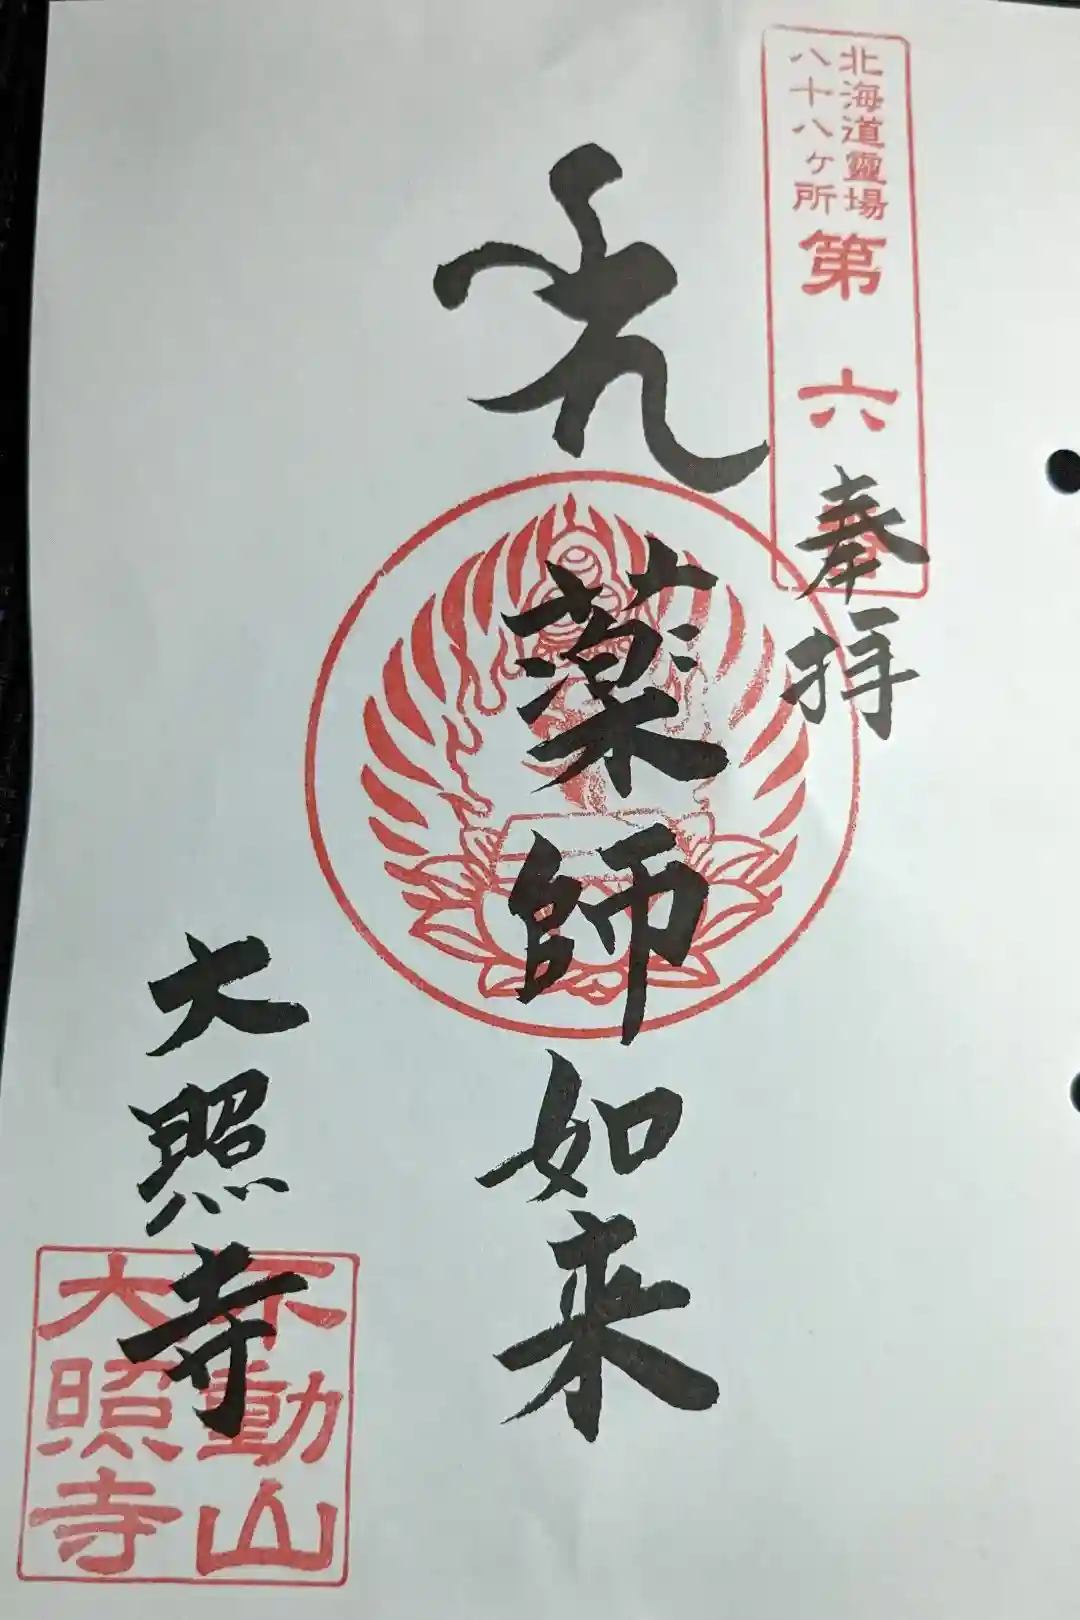 北海道靈場
八十八ヶ所
第 六
奉拝
薬師如来
大照寺
不動山
大照寺